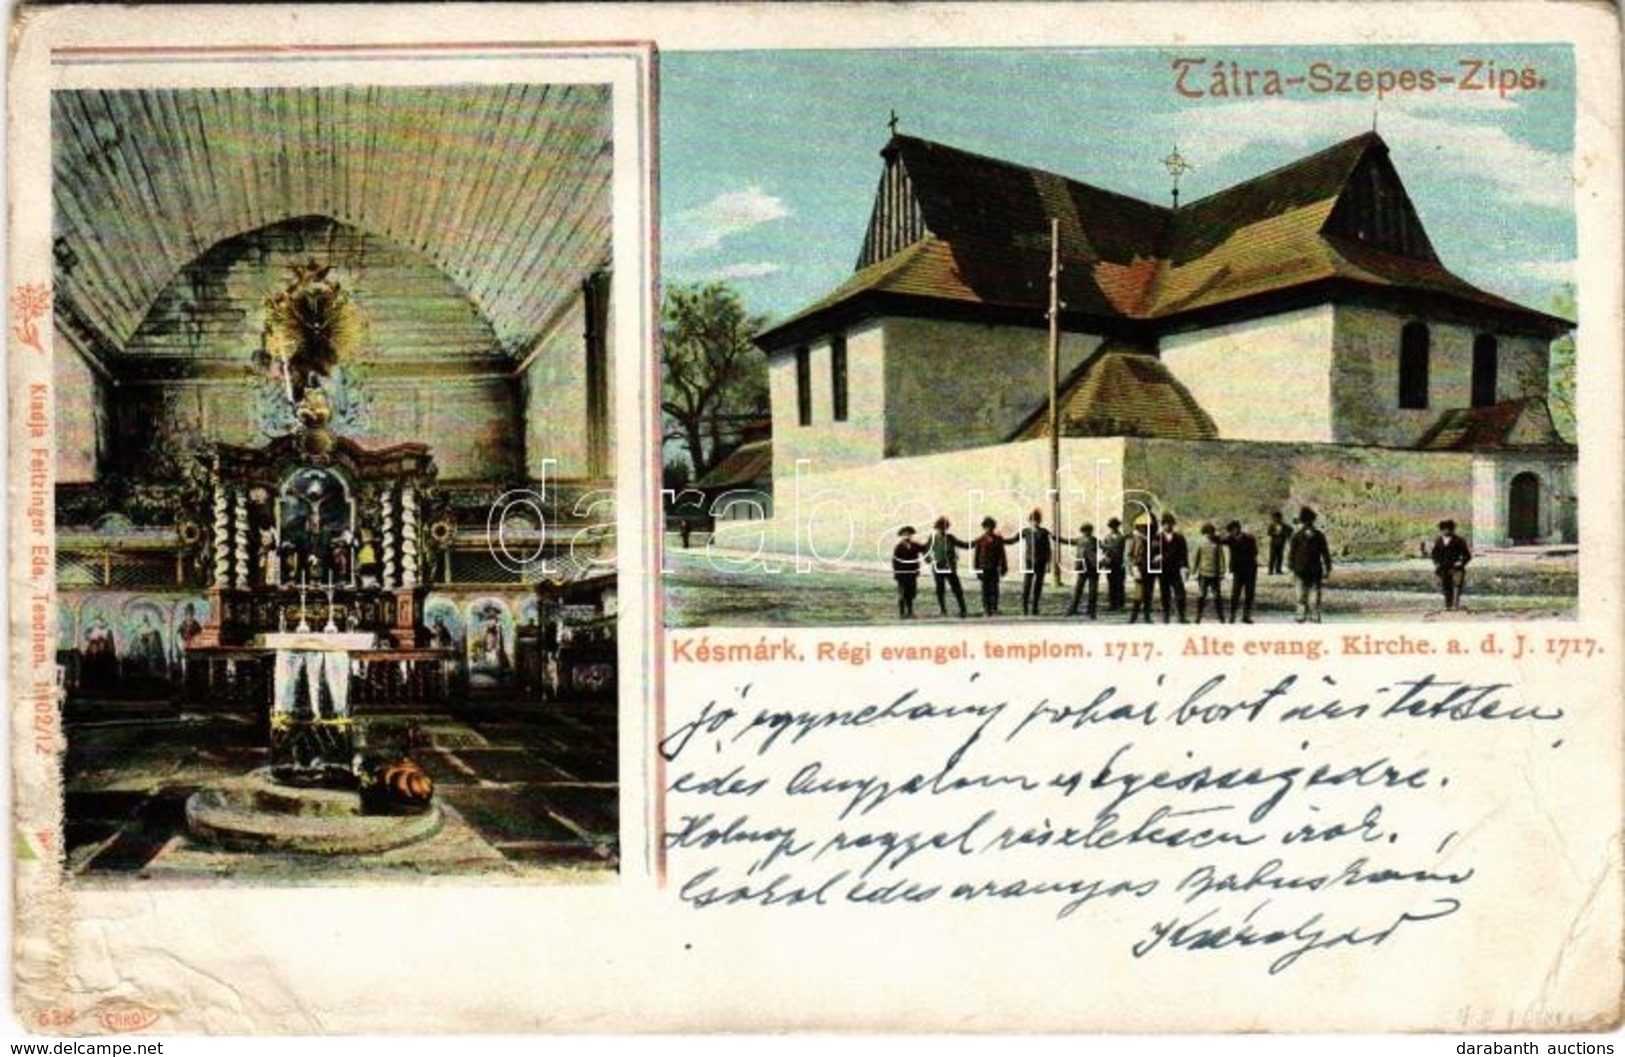 Tátra-Szepes-Zips.
Késmárk. Régi evangel. templom. 1717. Alte evang. Kirche. a. d. J. 1717.
jó egynehány pohár bort
édes Angyalom egészségedre.
Holnap reggel részletesen írok.
Csókol édes aranyos Babuskám
Károlyod
Kiadja Feitzinger Ede, Teschen. 1902/12
628
darabanth
darabanth auctions